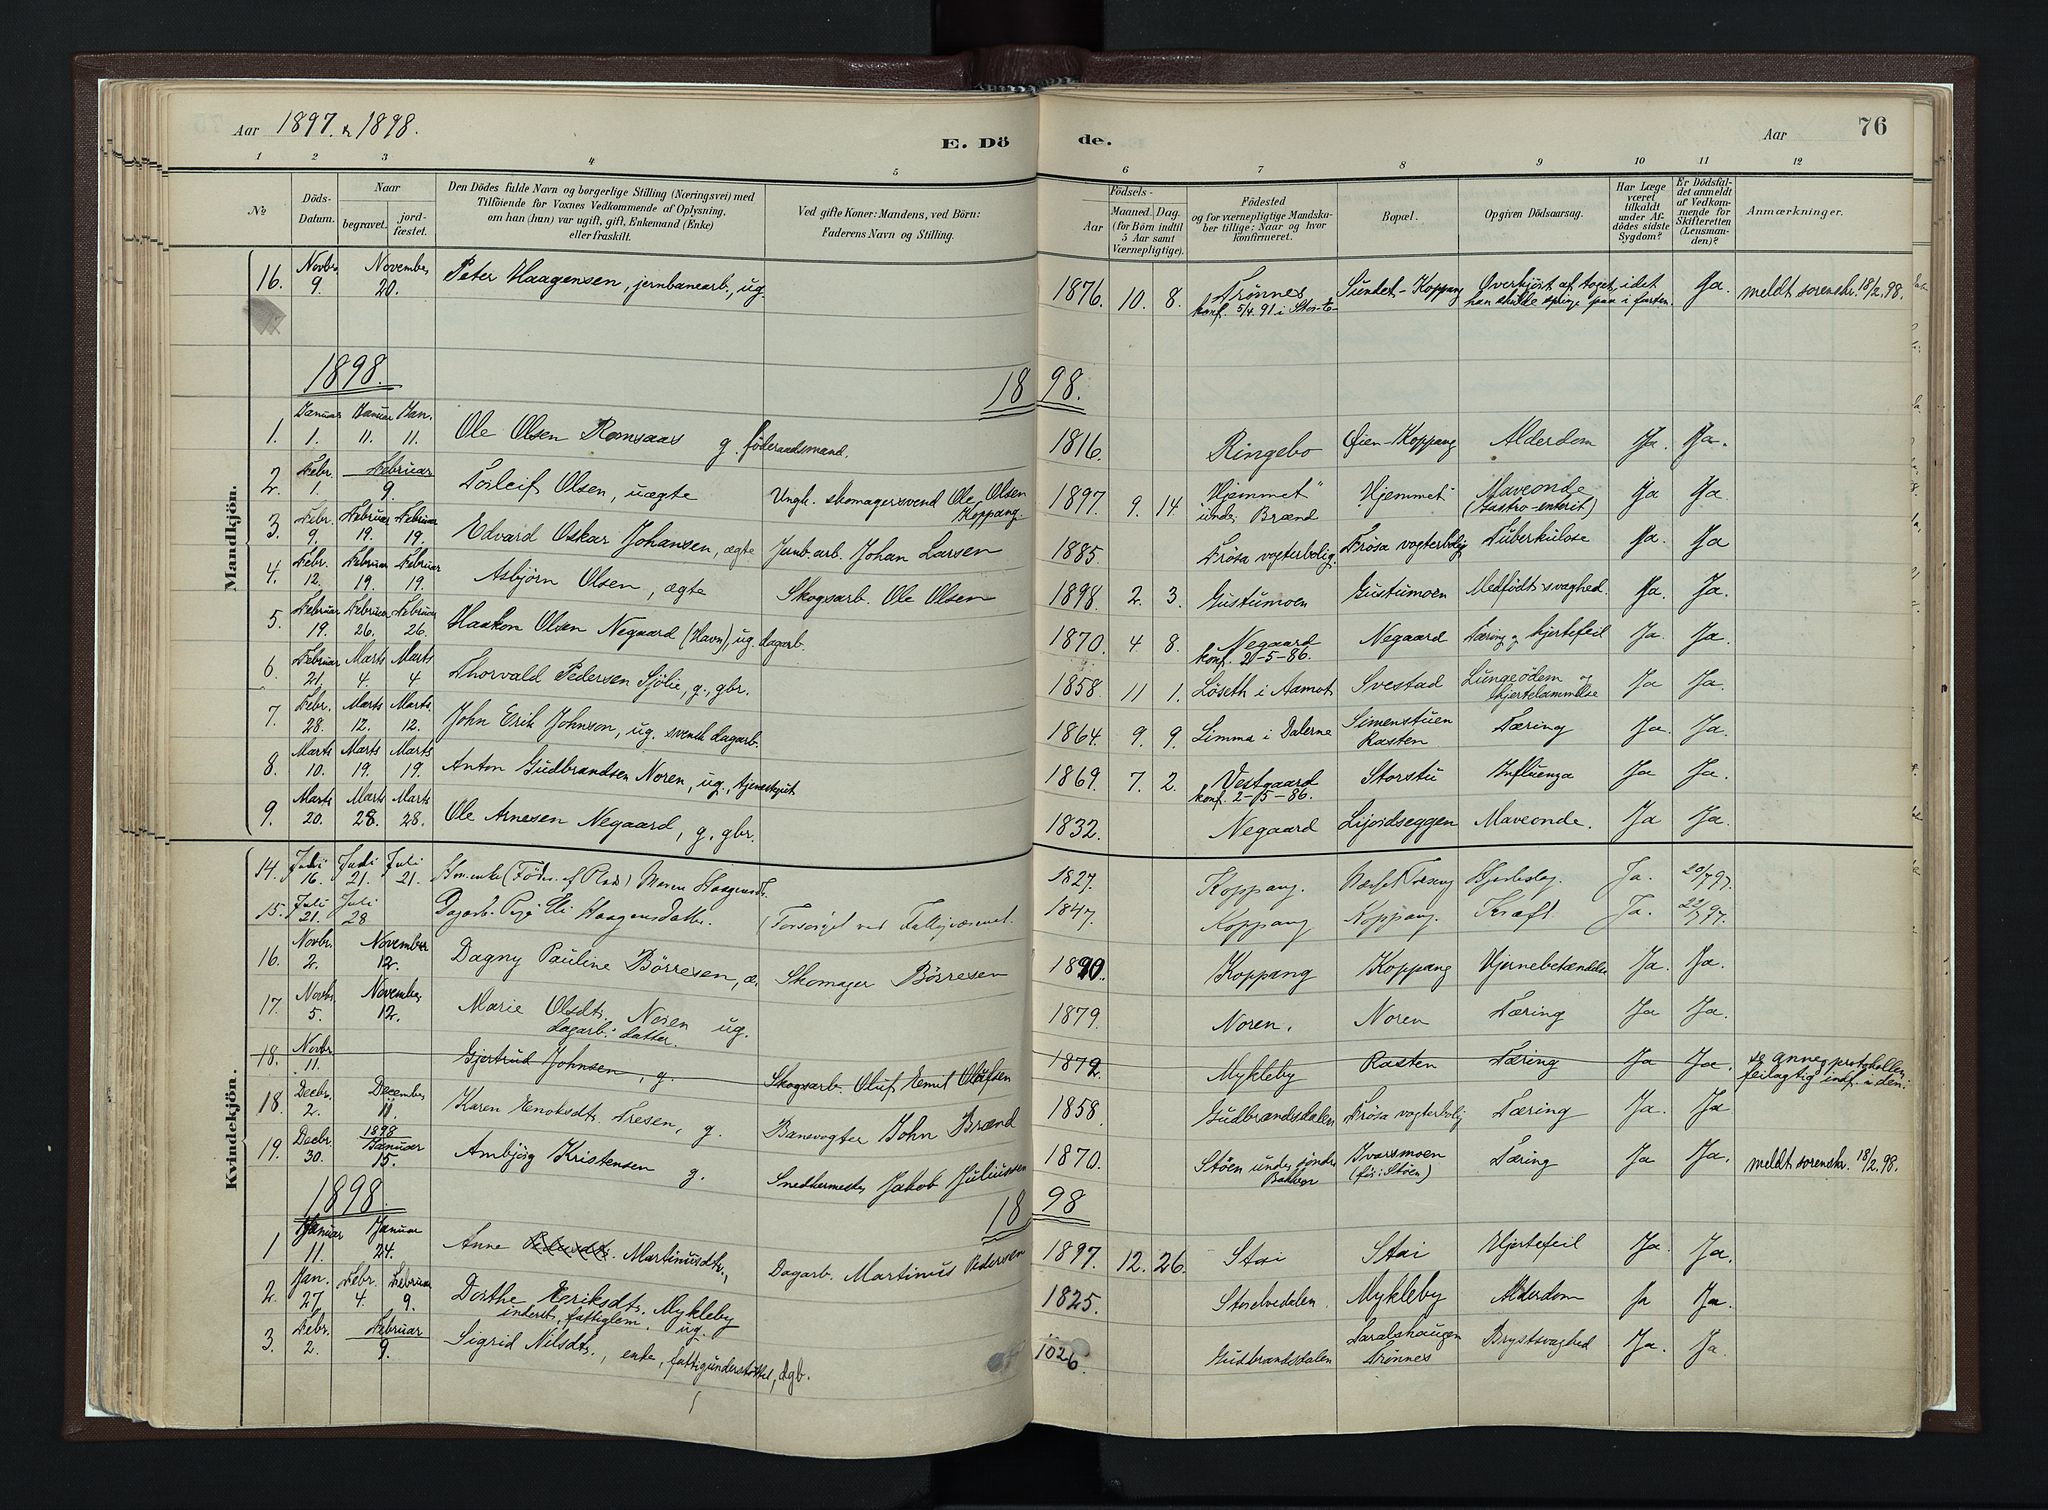 Aar 1897 & 1898.
E. Döde.
Aar
76
1 2 3 4 5 6 7 8 9 10 11 12
No
Döds-Datum.
Naar
begravet.
jord-fæstet.
Den Dödes fulde Navn og borgerlige Stilling (Næringsvei) med
Tilföiende for Voxnes Vedkommende af Oplysning,
om han (hun) var ugift, gift, Enkemand (Enke)
eller fraskilt.
Ved gifte Koner: Mandens, ved Börn:
Faderens Navn og Stilling.
Födsels-
Aar
Maaned. Dag.
(for Börn indtil
5 Aar samt
Værnepligtige).
Födested
og for værnepligtige Mandska-
ber tillige: Naar og hvor
konfirmeret.
Bopæl.
Opgiven Dödsaarsag.
Har Læge
været
tilkaldt
under Af-
dödes sidste
Sygdom?
Er Dödsfal-
det anmeldt
af Vedkom-
mende for
Skifteretten
(Lensman-
den)?
Anmærkninger.
Mandkjön.
16. Novbr. 9. November 20. Peter Haagensen, jernbanearb., ug. 1876. 10. 8. Trönnes konf. 5/4 91 i Stor- Sundet - Koppang Overkjört af toget, idet han skulde springe paa i farten. Ja. meldt sorenskr. 18/2. 98.
1898. 1898.
1. Januar 1. Januar 11. Jan. 11. Ole Olsen Romsaas g. föderaadsmand. 1816. Ringebo Öien - Koppang Alderdom Ja. Ja.
2. Febr. 1. Februar 9. Torleif Olsen, uægte Ungk. skomagersvend Ole Olsen Koppang. 1897. 9. 14. "Hjemmet" under Brænd Hjemmet Maveonde (Gastro-enterit) Ja Ja
3. Febr. 9. Februar 19. Februar 19. Edvard Oskar Johansen, ægte Jernb. arb. Johan Larsen 1885. Trösa vogterbolig. Trösa vogterbolig Tuberkulose Ja. Ja
4. Febr. 12. Februar 19. Februar 19. Asbjörn Olsen, ægte Skogsarb. Ole Olsen 1898. 2. 3. Gustumoen Gustumoen Medfödt svaghed. Ja. Ja.
5. Februar 19. Februar 26. Februar 26. Haakon Olsen Negaard (Havn), ug. dagarb. 1870. 4 8. Negaard konf. 2-5-86. Negaard Tæring og hjertefeil Ja. Ja.
6 Februar 21. Marts 4. Marts 4 Thorvald Pedersen Sjölie, g., gbr. 1858. 11 1. Löseth i Aamot Svestad Lungeödem og hjertelammelse Ja Ja.
7. Febr. 28. Marts 12. Marts 12. John Erik Johnson, ug. svensk dagarb. 1864. 9. 9. Limma i Dalerne Simenstuen Rasten Tæring Ja. Ja.
8. Marts 10. Marts 19. Marts 19. Anton Gudbrandsen Noren, ug., tjenestgut 1869. 7. 2. Vestgaard konf. 2-5-86. Storstu Influenza Ja Ja.
9. Marts 20. Marts 28. Marts 28. Ole Arnesen Negaard, g., gbr. 1832. Negaard Lijordseggen Maveonde. Ja Ja.
Kvindekjön.
14. Juli 16. Juli 21. Juli 21. Maren 1827. Koppang. Ja. 20/7 97.
15. Juli 21. Juli 28 Dagarb. Haagensdatter. (Forsörget ved Fattigvæsenet. 1847. Koppang Koppang. Kræft. Ja. 22/7 97.
16. Novbr. 2. November 12. Dagny Pauline Börresen, æ. Skomager Börresen 1890. Koppang Koppang Hjernebetændelse Ja. Ja.
17. Novbr. 5. November 12. Marie Olsdtr. Noren ug. dagarb. datter. 1879. Noren. Noren Tæring Ja Ja.
18. Novbr 11. Gjertrud Johnsen, g. Skogsarb. Oluf Emil Olafsen 1872. Mykleby Rasten Tæring Ja Ja. se annen protokollen, feilagtig indf. i den.
18. Decbr. 2. December 11. Karen Enoksdtr. Tresen, g. Banevogter John Brænd 1858. Gudbrandsdalen Trösa vogterbolig Tæring Ja. Ja
19. Decbr. 30. 1898 Januar 15. Ambjörg Kristensen g. Snedkermester Jakob Juliussen 1870. Stöen under söndre Bakken Ivarsmoen (för: Stöen) Tæring Ja Ja. meldt sorenskr. 18/2. 98.
1898 1898
1 Januar 11. Januar 24. Anne Martinusdtr., Dagarb. Martinus Pedersen 1897. 12. 26. Stai Stai Hjertefeil Ja. Ja.
2. Jan. 27. Febr. 4. Februar 9. Dorthe Eriksdtr. Mykleby inderst, fattiglem. ug. 1825. Storelvedalen. Mykleby Alderdom Ja Ja.
3 Febr. 2. Februar 9. Sigrid Nilsdtr., enke, fattigunderstöttet, dgb. Gudbrandsdalen Trönnes Brystsvaghed Ja. Ja.